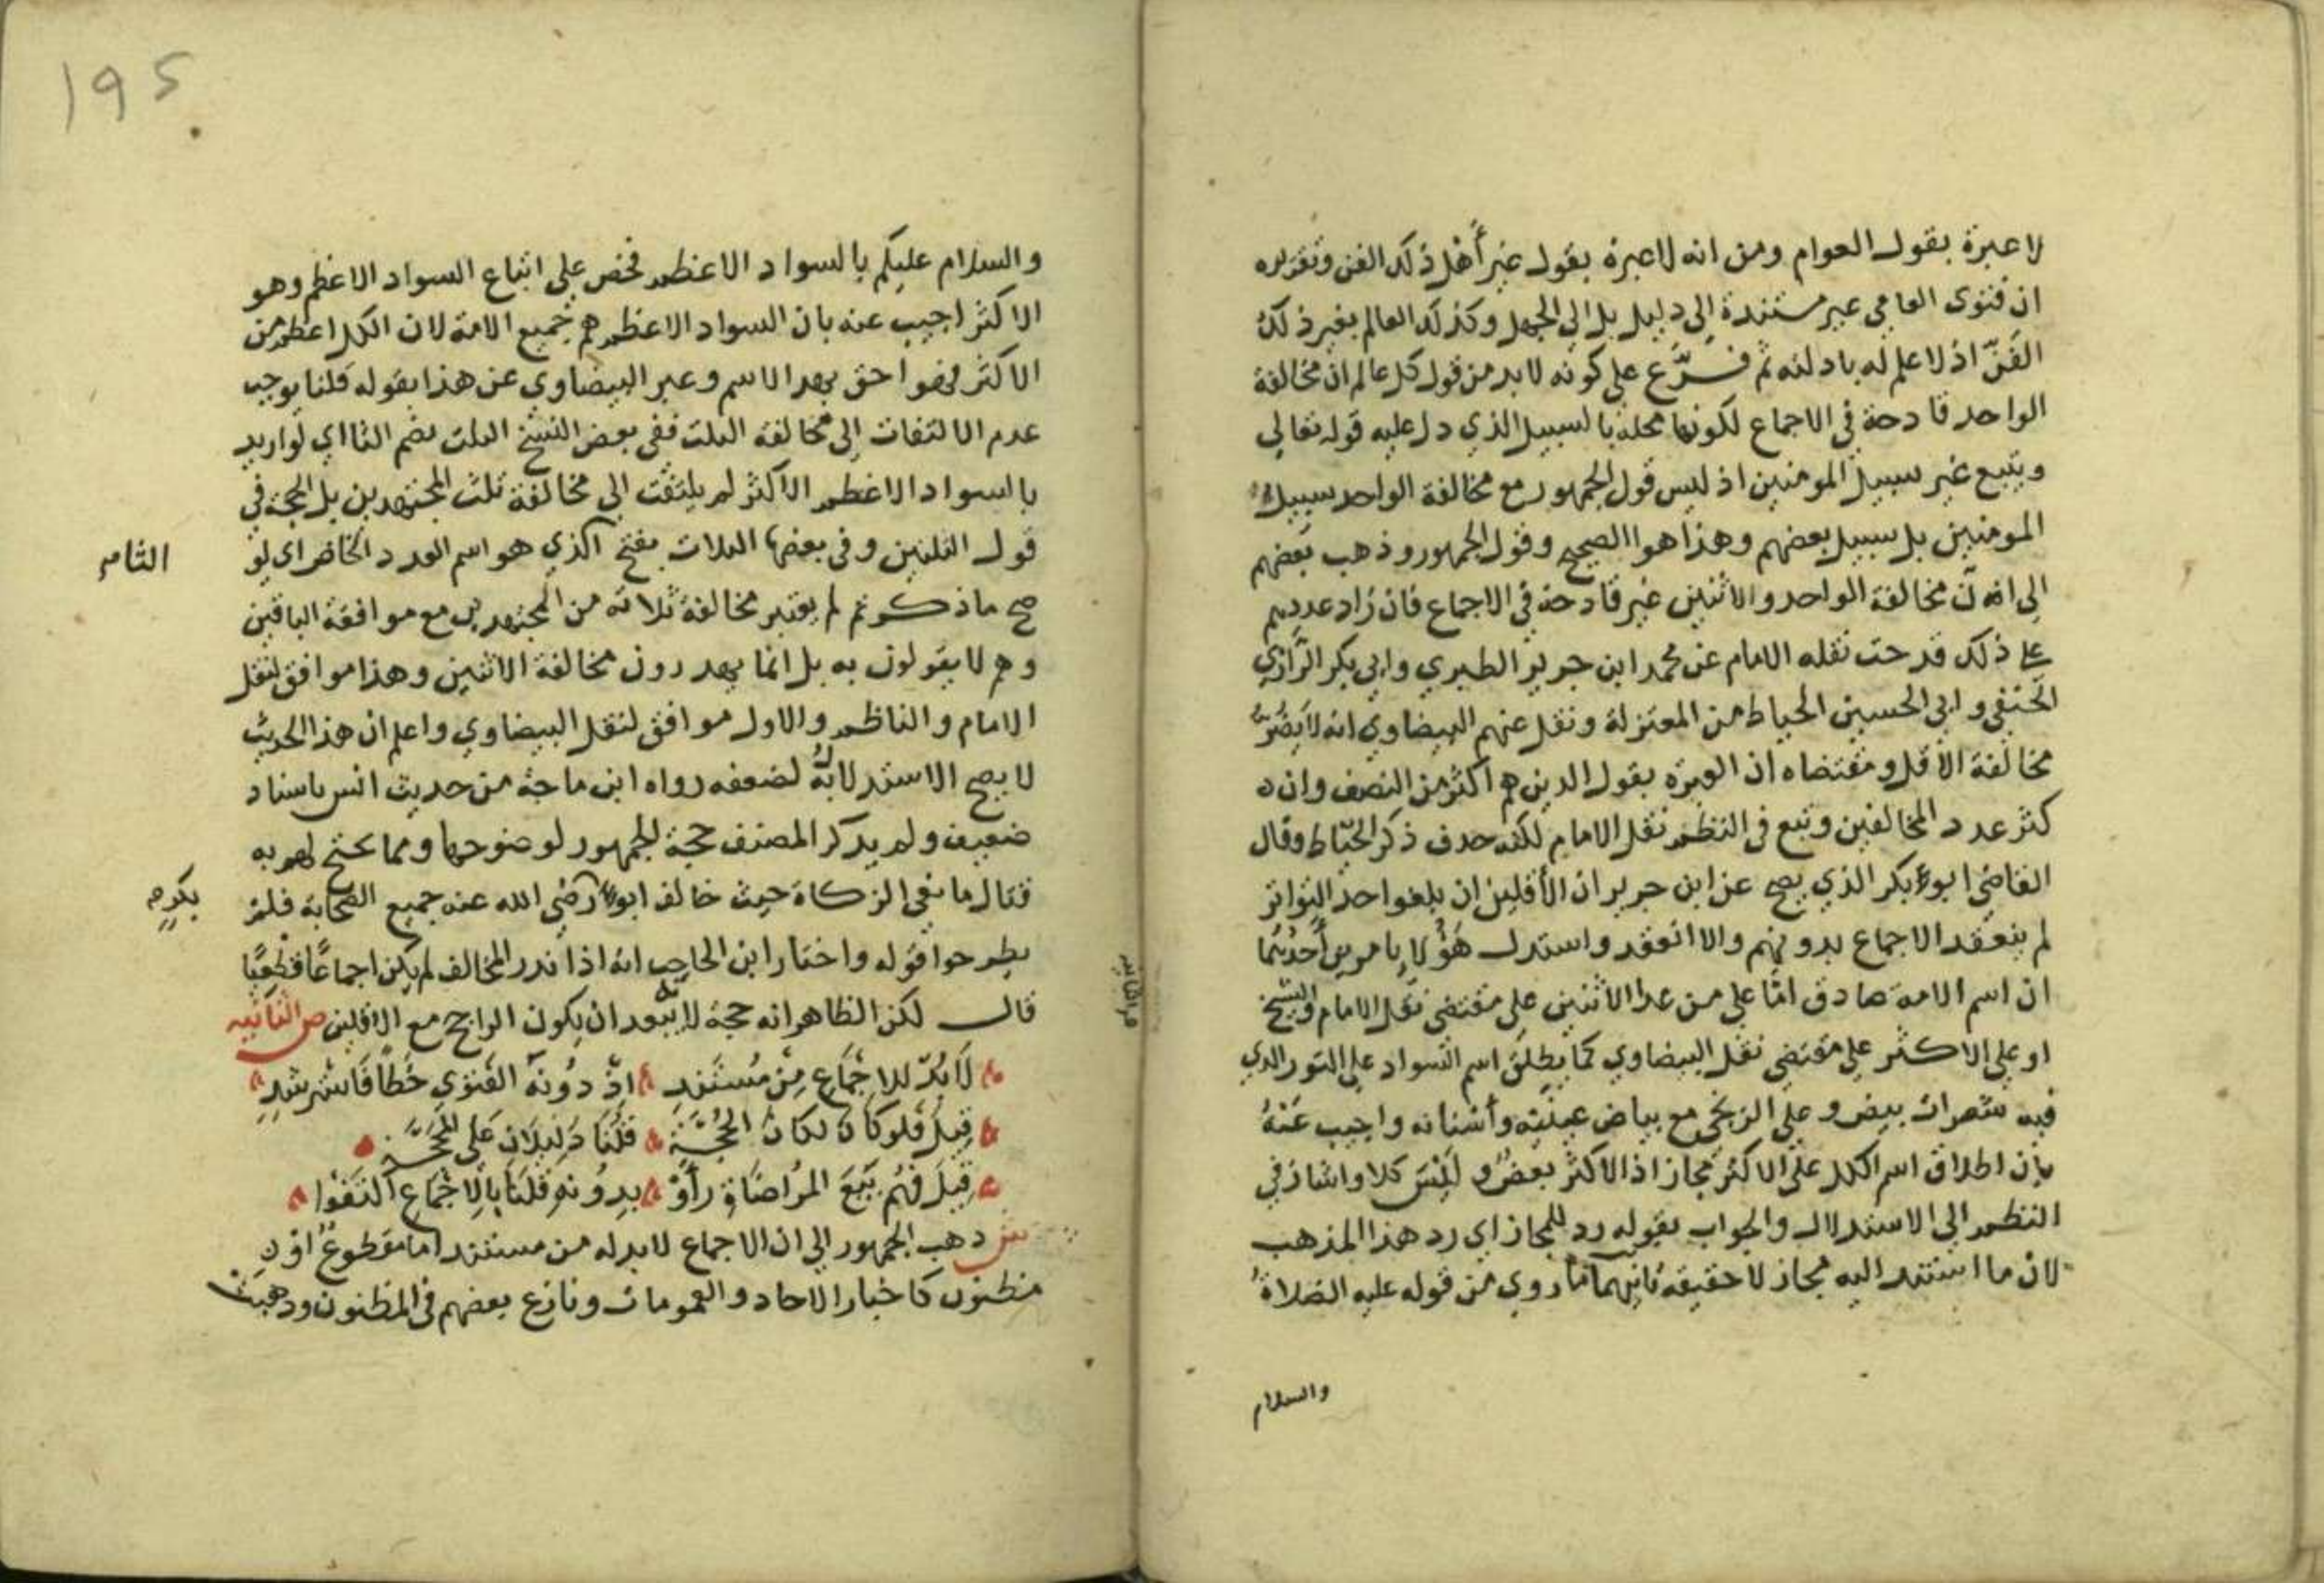 لا عبرة بقول العوام ومن انه لا عبرة بقول غير أهل ذلك الفن وتقريره
ان فتوى العامي غير مستندة إلى دليل بل إلى الجهل وكذلك العالم بغير ذلك
الفنّ اذ لا علم له بادلته ثم فرّع على كونه لا بد من قول كل عالم ان مخالفة
الواحد قادحة في الاجماع لكونها مخلة بالسبيل الذي دل عليه قوله تعالى
ويتبع غير سبيل المومنين اذ ليس قول الجمهور مع مخالفة الواحد سبيل
المومنين بل سبيل بعضهم وهذا هو الصحيح وقول الجمهور وذهب بعضهم
إلى ان مخالفة الواحد والاثنين غير قادحة في الاجماع فان زاد عددهم
على ذلك قدحت نقله الامام عن محمد ابن جرير الطبري وابي بكر الرازي
الحنفي وابي الحسين الخياط من المعتزلة ونقل عنهم البيضاوي انه لا يضر
مخالفة الأقل ومقتضاه ان العبرة بقول الدين هم اكثر من النصف وان
كثر عدد المخالفين وتبع في النظم نقل الامام لكنه حدف ذكر الخيّاط وقال
القاضي ابو بكر الذي يصح عن ابن جرير ان الأقلين ان بلغوا حد التواتر
لم ينعقد الاجماع بدونهم والا انعقد واستدل هؤلاء بامرين أحدهما
ان اسم الامة صادق امّا على من عدا الاثنين على مقتضى نقل الامام والشيخ
او على الاكثر على مقتضى نقل البيضاوي كما يطلق اسم السواد على الثور الذي
فيه شعرات بيض وعلى الزنجي مع بياض عينيه وأسنانه واجيب عنه
بان اطلاق اسم الكل على الاكثر مجاز اذ الاكثر بعض وليس كلا واشار في
النظم إلى الاستدلال والجواب بقوله رد للمجاز اي رد هذا المذهب
لان ما استند اليه مجاز لا حقيقة ثانيهما ما روي من قوله عليه الصلاة
والسلام
195
والسلام عليكم بالسواد الاعظم فحض على اتباع السواد الاعظم وهو
الاكثر اجيب عنه بان السواد الاعظم هم جميع الامة لان الكل اعظم من
الاكثر فهو احق بهذا الاسم وعبر البيضاوي عن هذا بقوله قلنا يوجب
عدم الالتفات إلى مخالفة الثلث ففي بعض النسخ الثلث بضم الثا اي لو اريد
بالسواد الاعظم الاكثر لم يلتفت إلى مخالفة ثلث المجتهدين بل الحجة في
قول الثلثين وفي بعضها الثلاث بفتح الذي هو اسم العدد الخاص اى لو
الثاء
صح ما ذكرتم لم يعتبر مخالفة ثلاثة من المجتهدين مع موافقة الباقين
وهم لا يقولون به بل انما يهدرون مخالفة الاثنين وهذا موافق لنقل
الامام والناظم والاول موافق لنقل البيضاوي واعلم ان هذا الحديث
لا يصح الاستدلال به لضعفه رواه ابن ماجة من حديث انس باسناد
ضعيف ولم يدكر المصنف حجة الجمهور لوضوحها ومما يحتج لهم به
قتال مانعي الزكاة حيث خالف ابو رضي الله عنه جميع الصحابة فلم
بكر صح
يطرحوا قوله واختار ابن الحاجب انه اذا ندر المخالف لم يكن اجماعًا قطعيًا
قال لكن الظاهر انه حجة لا يبعد ان يكون الراجح مع الاقلين ص الثانية
لَابُدّ للاِجْمَاعِ مِنْ مُسْتَنَدِ اذْ دُونَهُ الفَتْوَى خَطًا فَاسْتَرْشِدِ
قِيلَ فَلَو كَانَ لكانَ الحُجَّة قُلْنَا دَلِيلَانِ عَلى المَحَجَّة
قِيلَ فَهُم بَيْعَ المُرَاضَاةِ رَأَوْا بِدُونِهِ قُلْنَا بِالاِجْمَاعِ اكْتَفَوْا
ش دهب الجمهور إلى ان الاجماع لابد له من مستند اما مقطوع او
مظنون كاخبار الاحاد والعمومات ونازع بعضهم في المظنون ودهبت